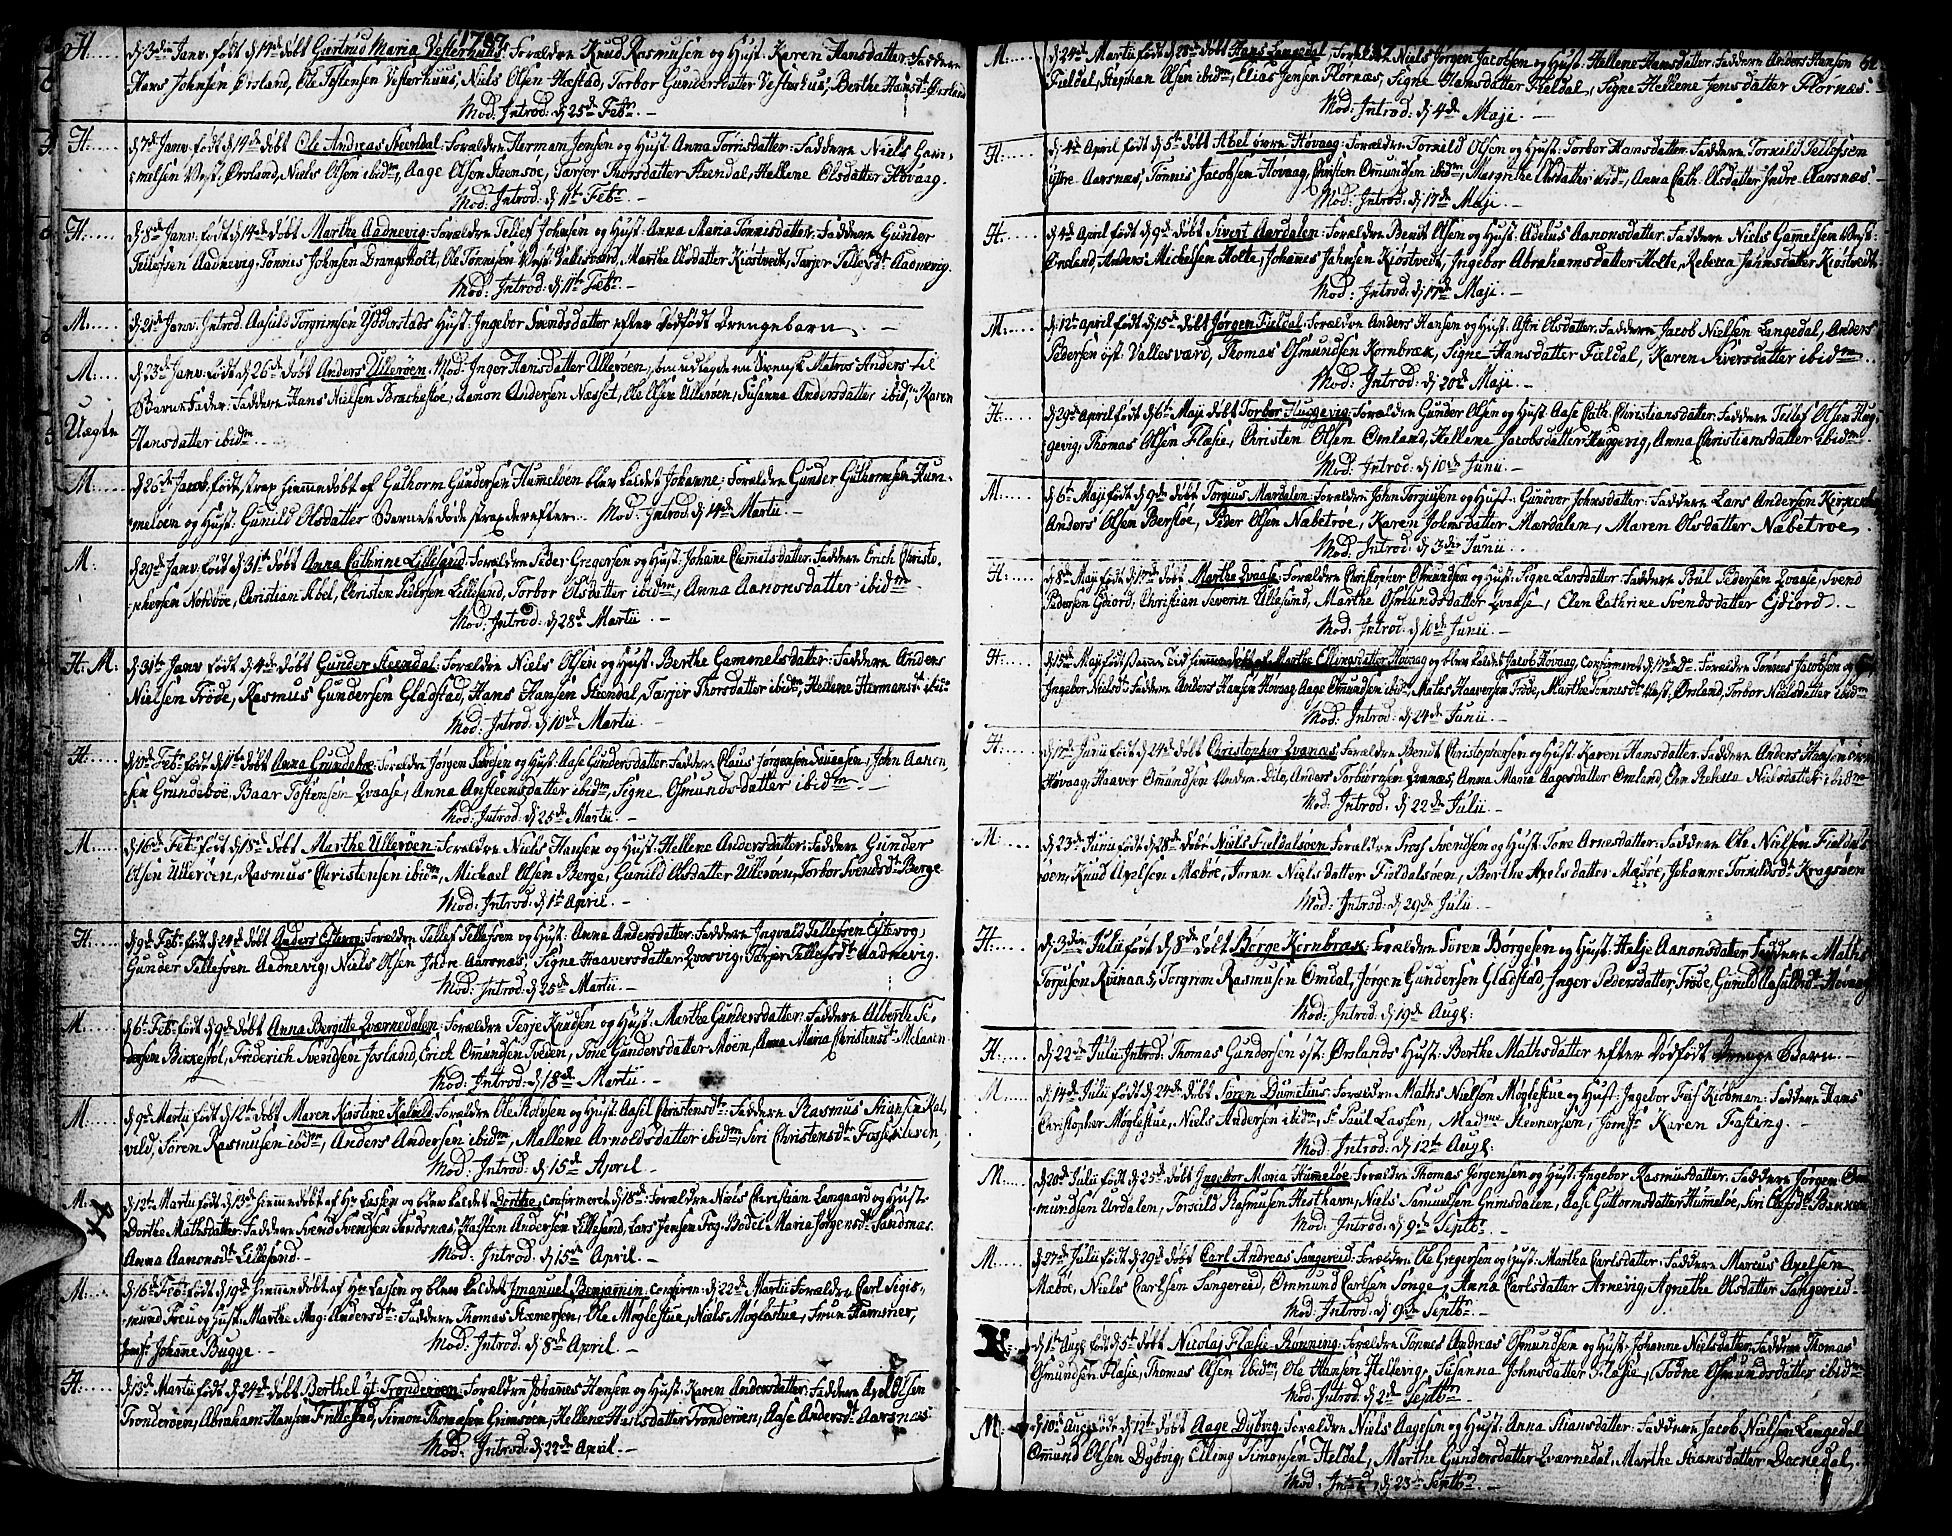 1787
H. d 3die Janv. født d 14de døbt Giertrud Maria Vesterhuus: Forældre Knud Rasmusen og Hust: Karen Hansdatter: Faddere
Hans Johnsen Ørsland, Ole Tostensen Vesterhuus, Niels Olsen Hæstad, Torbor Gundersdatter Vesterhuus, Berthe Hansdt. Ørsland
Mod: Introd: d 25de Febr. –
H. d 7de Janv. født d 14de døbt Ole Andreas Steendal: Forældre Herman Jensen og Hust: Anna Tørrisdatter: Faddere Niels Gam-
melsen Vest: Ørsland, Niels Olsen ibidm, Aage Olsen Steensøe, Tarjer Thorsdatter Steendal, Hellene Olsdatter Høvaag.
Mod: Introd: d 11te Febr. –
H. d 8de Janv. født d 14de døbt Marthe Aadnevig: Forældre Tellef Johnsen og Hust: Anna Maria Tønnisdatter: Faddere Gunder
Tellefsen Aadnevig, Tønnes Johnsen Drangsholt, Ole Tønnesen Vest: Vallesværd, Marthe Olsdatter Kiøstvedt, Tarjer Tellefsdt. Aadnevig.
Mod: Introd: d 11te Febr. –
M. d 21de Janv. Introd: Aasuls Torgrimsen Ydderstads Hust: Ingebor Svendsdatter efter Dødfødt Drengebarn –
M. d 23de Janv. født d 26de døbt Anders Ulleröen. Mod: Inger Hansdatter Ulleröen, som udlagde en Svensk Matros Anders til
Uægte Barnefader: Faddere Hans Nielsen Bræchestøe, Aanon Andersen Næsset, Ole Olsen Ulleröen, Susanna Andersdatter ibid, Karen
Hansdatter ibidm.
M. d 26de Janv. født strax hiemmedøbt af Guthorm Gundersen Hummelöen blev kaldet Johanne: Forældre Gunder Guthormsen Hum-
melöen og Hust: Gunild Olsdatter Barnet døde strax derefter. Mod: Introd: d 14de Martii. –
M. d 29de Janv. født d 31te døbt Anna Cathrine Lillesand: Forældre Peder Gregersen og Hust: Johane Clemmetsdatter: Faddere Erich Christo-
phersen Nordbøe, Christian Abel, Christen Pedersen Lillesand, Torbor Olsdatter ibidm, Anna Aanonsdatter ibidm.
Mod: Introd: d 28de Martii. –
H. M. d 31te Janv. født d 4de døbt Gunder Steendal: Forældre Niels Olsen og Hust: Berthe Gammelsdatter: Faddere Anders
Nielsen Trøde, Rasmus Gundersen Gladstad, Hans Hansen Steendal, Tarjer Thorsdatter ibidm, Hellene Hermansdt. ibidm
Mod: Introd: d 10de Martii. –
H. d 10de Febr. født d 11te døbt Anna Grundeböe: Forældre Jørgen Sørensen og Hust: Aase Gundersdatter: Faddere Claus Jørgensen, John Aanon-
sen Grundeböe, Baar Tostensen Qvaase, Anna Ansteensdatter ibidm, Signe Osmundsdatter ibidm.
Mod: Introd: d 25de Martii –
M. d 16de Febr. født d 18de døbt Marthe Ulleröen: Forældre Niels Hansen og Hust: Hellene Andersdatter: Faddere Gunder
Olsen Ulleröen, Rasmus Christensen ibidm, Michael Olsen Berge, Gunild Olsdatter Ulleröen, Torbor Svendsdt. Berge
Mod: Introd: d 1te April. –
H. d 9de Febr. født d 24de døbt Anders Estevog: Forældre Tellef Tellefsen og Hust: Anna Andersdatter: Faddere Ingvald Tellefsen Estevog,
Gunder Tellefsen Aadnevig, Niels Olsen Indre Aarsnæs, Signe Haaversdatter Qvarsvig, Tarjer Tellefsdt. Aadnevig.
Mod: Introd: d 25de Martii. –
M. d 6te Febr. født d 9de døbt Anna Bergitte Qvernedalen: Forældre Terje Knudsen og Hust: Marthe Gundersdatter: Faddere Alberth Pe-
dersen Birkesol, Friderich Svendsen Josland, Erich Omundsen Tveden, Tone Gundersdatter Moen, Anna Maria Christensdt. Melaan.
Mod: Introd: d 18de Martii –
M. d 9de Martii født d 12te døbt Maren Kirstine Kalvild: Forældre Ole Rolvsen og Hust: Aasel Christensdt: Faddere Rasmus Stiansen Kal-
vild, Søren Rasmusen ibidm, Anders Andersen ibidm, Mallene Arnoldsdatter ibidm, Siri Christensdt. Fossekleven,
Mod: Introd: d 15de April –
M. d 12te Martii født d 13de hiemmedøbt af Hr. Lassen og blev kaldet Dorthe, confirmeret d 18de: Forældre Niels Christian Langaard og Hust.
Dorthe Mathsdatter: Faddere Svend Svendsen Sandsnæs, Halsten Andersen Lillesand, Lars Jensen, Bodel Maria Jørgensdt. Sandsnæs.
Anna Aanonsdt. Lillesand. – Mod: Introd: d 15de April. –
M. d 16de Febr. født d 19de hiemmedøbt af Hr. Lassen og blev kaldet Imanuel Benjamin, confirm: d 22de Martii Forældre Carl Sigis-
mund og Hust: Marthe Mag: Andersdt: Faddere Thomas Stenersen, Ole Møglestue, Niels Møglestue, Frue Hammer,
Jomf: Johane Bugge. Mod: Introd: d 8de April –
H. d 13de Martii født d 24de døbt Berthel yt: Trønderöen: Forældre Johanes Hansen og Hust: Karen Andersdatter: Faddere Axel Olsen
Trønderöen, Abraham Hansen Frillestad, Simon Thomasen Grimsøen, Hellene Hansdatter Trønderöen, Aase Andersdt. Aarsnæs.
Mod: Introd: d 22de April. –
M. d 24de Martii født d 28de døbt Hans Langedal: Forældre Niels Jørgen Jacobsen og Hust: Hellene Hansdatter: Faddere Anders Hansen
Fieldal, Stephan Olsen ibidm, Elias Jensen Flørnæs, Signe Hansdatter Fieldal, Signe Hellene Jensdatter Flørnæs.
Mod: Introd: d 4de Maji. –
H. d 4de April født d 5te døbt Abel øvre Høvaag: Forældre Torkild Olsen og Hust: Torbor Hansdatter: Faddere Torkild Tellefsen
Yttre Aarsnæs, Tønnis Jacobsen Høvaag, Christen Omundsen ibidm, Margrethe Olsdatter ibidm, Anna Cath. Olsdatter Indre Aarsnæs.
Mod: Introd: d 17de Maji. –
H. d 4de April født d 9de døbt Sivert Aardalen: Forældre Bendt Olsen og Hust: Adelus Aanonsdatter: Faddere Niels Gammelsen Vest:
Ørsland, Anders Michelsen Holte, Johanes Jahnsen Kiøstvedt, Ingebor Abrahamsdatter Holte, Rebecca Jahnsdatter Kiøstvedt
Mod: Introd: d 17de Maji. –
M. d 12te April født d 15de døbt Jørgen Fieldal: Forældre Anders Hansen og Hust: Astri Olsdatter: Faddere Jacob Nielsen Langedal, Anders
Pedersen øst: Vallesværd, Thomas Osmundsen Kornbræk, Signe Hansdatter Fieldal, Karen Siversdatter ibidm.
Mod: Introd: d 20de Maji. –
H. d 29de April født d 6te Maji døbt Torbor Huggevig: Forældre Gunder Olsen og Hust: Aase Cath. Christiansdatter: Faddere Tellef Olsen Hug-
gevig, Thomas Olsen Flæsie, Christen Olsen Omland, Hellene Jacobsdatter Huggevig, Anna Christiansdatter ibidm
Mod: Introd: d 10de Junii –
M. d 6te Maji født d 9de døbt Torgius Mørdalen: Forældre John Torgiusen og Hust: Gunvor Johnsdatter: Faddere Lars Andersen
Anders Olsen Berstøe, Peder Olsen Næbetröe, Karen Johnsdatter Mørdalen, Maren Olsdatter Næbetroe
Mod: Introd: d 3die Junii.
H. d 8de Maji født d 17de døbt Marthe Qvaase: Forældre Christopher Osmundsen og Hust: Signe Larsdatter: Faddere Poul Pedersen Qvaase, Svend
Pedersen Ejdiord, Christian Severin Ullesund, Marthe Osmundsdatter Qvaase, Elen Cathrine Svendsdatter Ejdiord. –
Mod: Introd: d 10de Junii –
H. d 15de Maji født hiemmedøbt af Marthe Ellingsdatter Høvaag og blev kaldet Jacob Høvaag, confirmeret d 17de do. Forældre Tønnes Jacobsen og
Ingebor Nielsdt: Faddere Anders Hansen Høvaag, Aage Omundsen ibidm, Mathis Haaversen Trøde, Marthe Tønnesdt. Vest: Ørsland, Torbor Nielsdatter ibidm
Mod: Introd: d 24de Junii. –
H. d 17de Junii født d 24de døbt Christopher Qvanæs: Forældre Bendt Christophersen og Hust: Karen Hansdatter: Faddere Anders Hansen øvre
Høvaag, Haaver Omundsen Undre Dito, Anders Torbiörnsen Qvanæs, Anna Maria Aagesdatter Omland, Elen Rebecca Nielsdatter ibidm
Mod: Introd: d 22de Julii –
M. d 23de Junii født d 28de døbt Niels Fieldalsöen: Forældre Svendsen og Hust: Tore Arnesdatter: Faddere Ole Nielsen Fieldals-
öen, Knud Axelsen Mæböe, Joran Nielsdatter Fieldalsöen, Berthe Axelsdatter Mæböe, Johanne Torkildsdt. Kragsöen
Mod: Introd: d 29de Julii –
H. d 3die Julii født d 8de døbt Börge Kornbræk: Forældre Søren Børgesen og Hust: Helje Aanonsdatter: Faddere Maths
Torjusen Kvinaas, Torgrim Rasmusen Omdal, Jørgen Gundersen Gladstad, Inger Pedersdatter Trøde, Gunild Aasuldsdt. Høvaag
Mod: Introd: d 19de Augt:
H. d 22de Julii Introd: Thomas Gundersen øst: Ørslands Hust: Berthe Mathsdatter efter Dødfødt Drenge Barn. –
M. d 14de Julii født d 24de døbt Søren Dumetius: Forældre Maths Nielsen Møglestue og Hust: Ingebor Kirbman: Faddere Hans
Christopher Møglestue, Niels Andersen ibidm, Sr. Paul Lassen, Madme Stevnersen, Jomfr. Karen Fasting. –
Mod: Introd: d 12te Augt:
M. d 20de Julii født d 25de døbt Ingebor Maria Hummelöe: Forældre Thomas Jørgensen og Hust: Ingebor Rasmusdatter: Faddere Jørgen Os-
mundsen Urdalen, Torkild Rasmusen Hesthavn, Niels Samuelsen Grimsdalen, Aase Guttormsdatter Humelöe, Siri Olsdt. Bakken
Mod: Introd: d 9de Septbr. –
M. d 27de Julii født d 29de døbt Carl Andreas Sangereid: Forældre Ole Gregersen og Hust: Martha Carlsdatter: Faddere Marcus Axelsen
Mæböe, Niels Carlsen Sangereid, Omund Carlsen Songe, Anna Carlsdatter Arnevig, Agnethe Olsdatter Sangereid
Mod: Introd: d 9de Septbr. –
H. d 1te Augt. født d 5te døbt Nicolay Flæsie Rønning: Forældre Tønnes Andreas Osmundsen og Hust: Johanne Nielsdatter: Faddere Thomas
Osmundsen Flæsie, Thomas Olsen ibidm, Ole Hansen Hellevig, Susanna Johnsdatter Flæsie, Todne Osmundsdatter ibidm
Mod: Introd: d 2de Septbr. –
M. d 10de Augt. født d 12te døbt Aage Dybvig: Forældre Niels Aagesen og Hust: Anna Stiansdatter: Faddere Jacob Nielsen Langedal
Omund Olsen Dybvig, Elling Simonsen Heldal, Marthe Gundersdatter Qværnedal, Marthe Stiansdatter Dalnedal.
Mod: Introd: d 23de Septbr. –